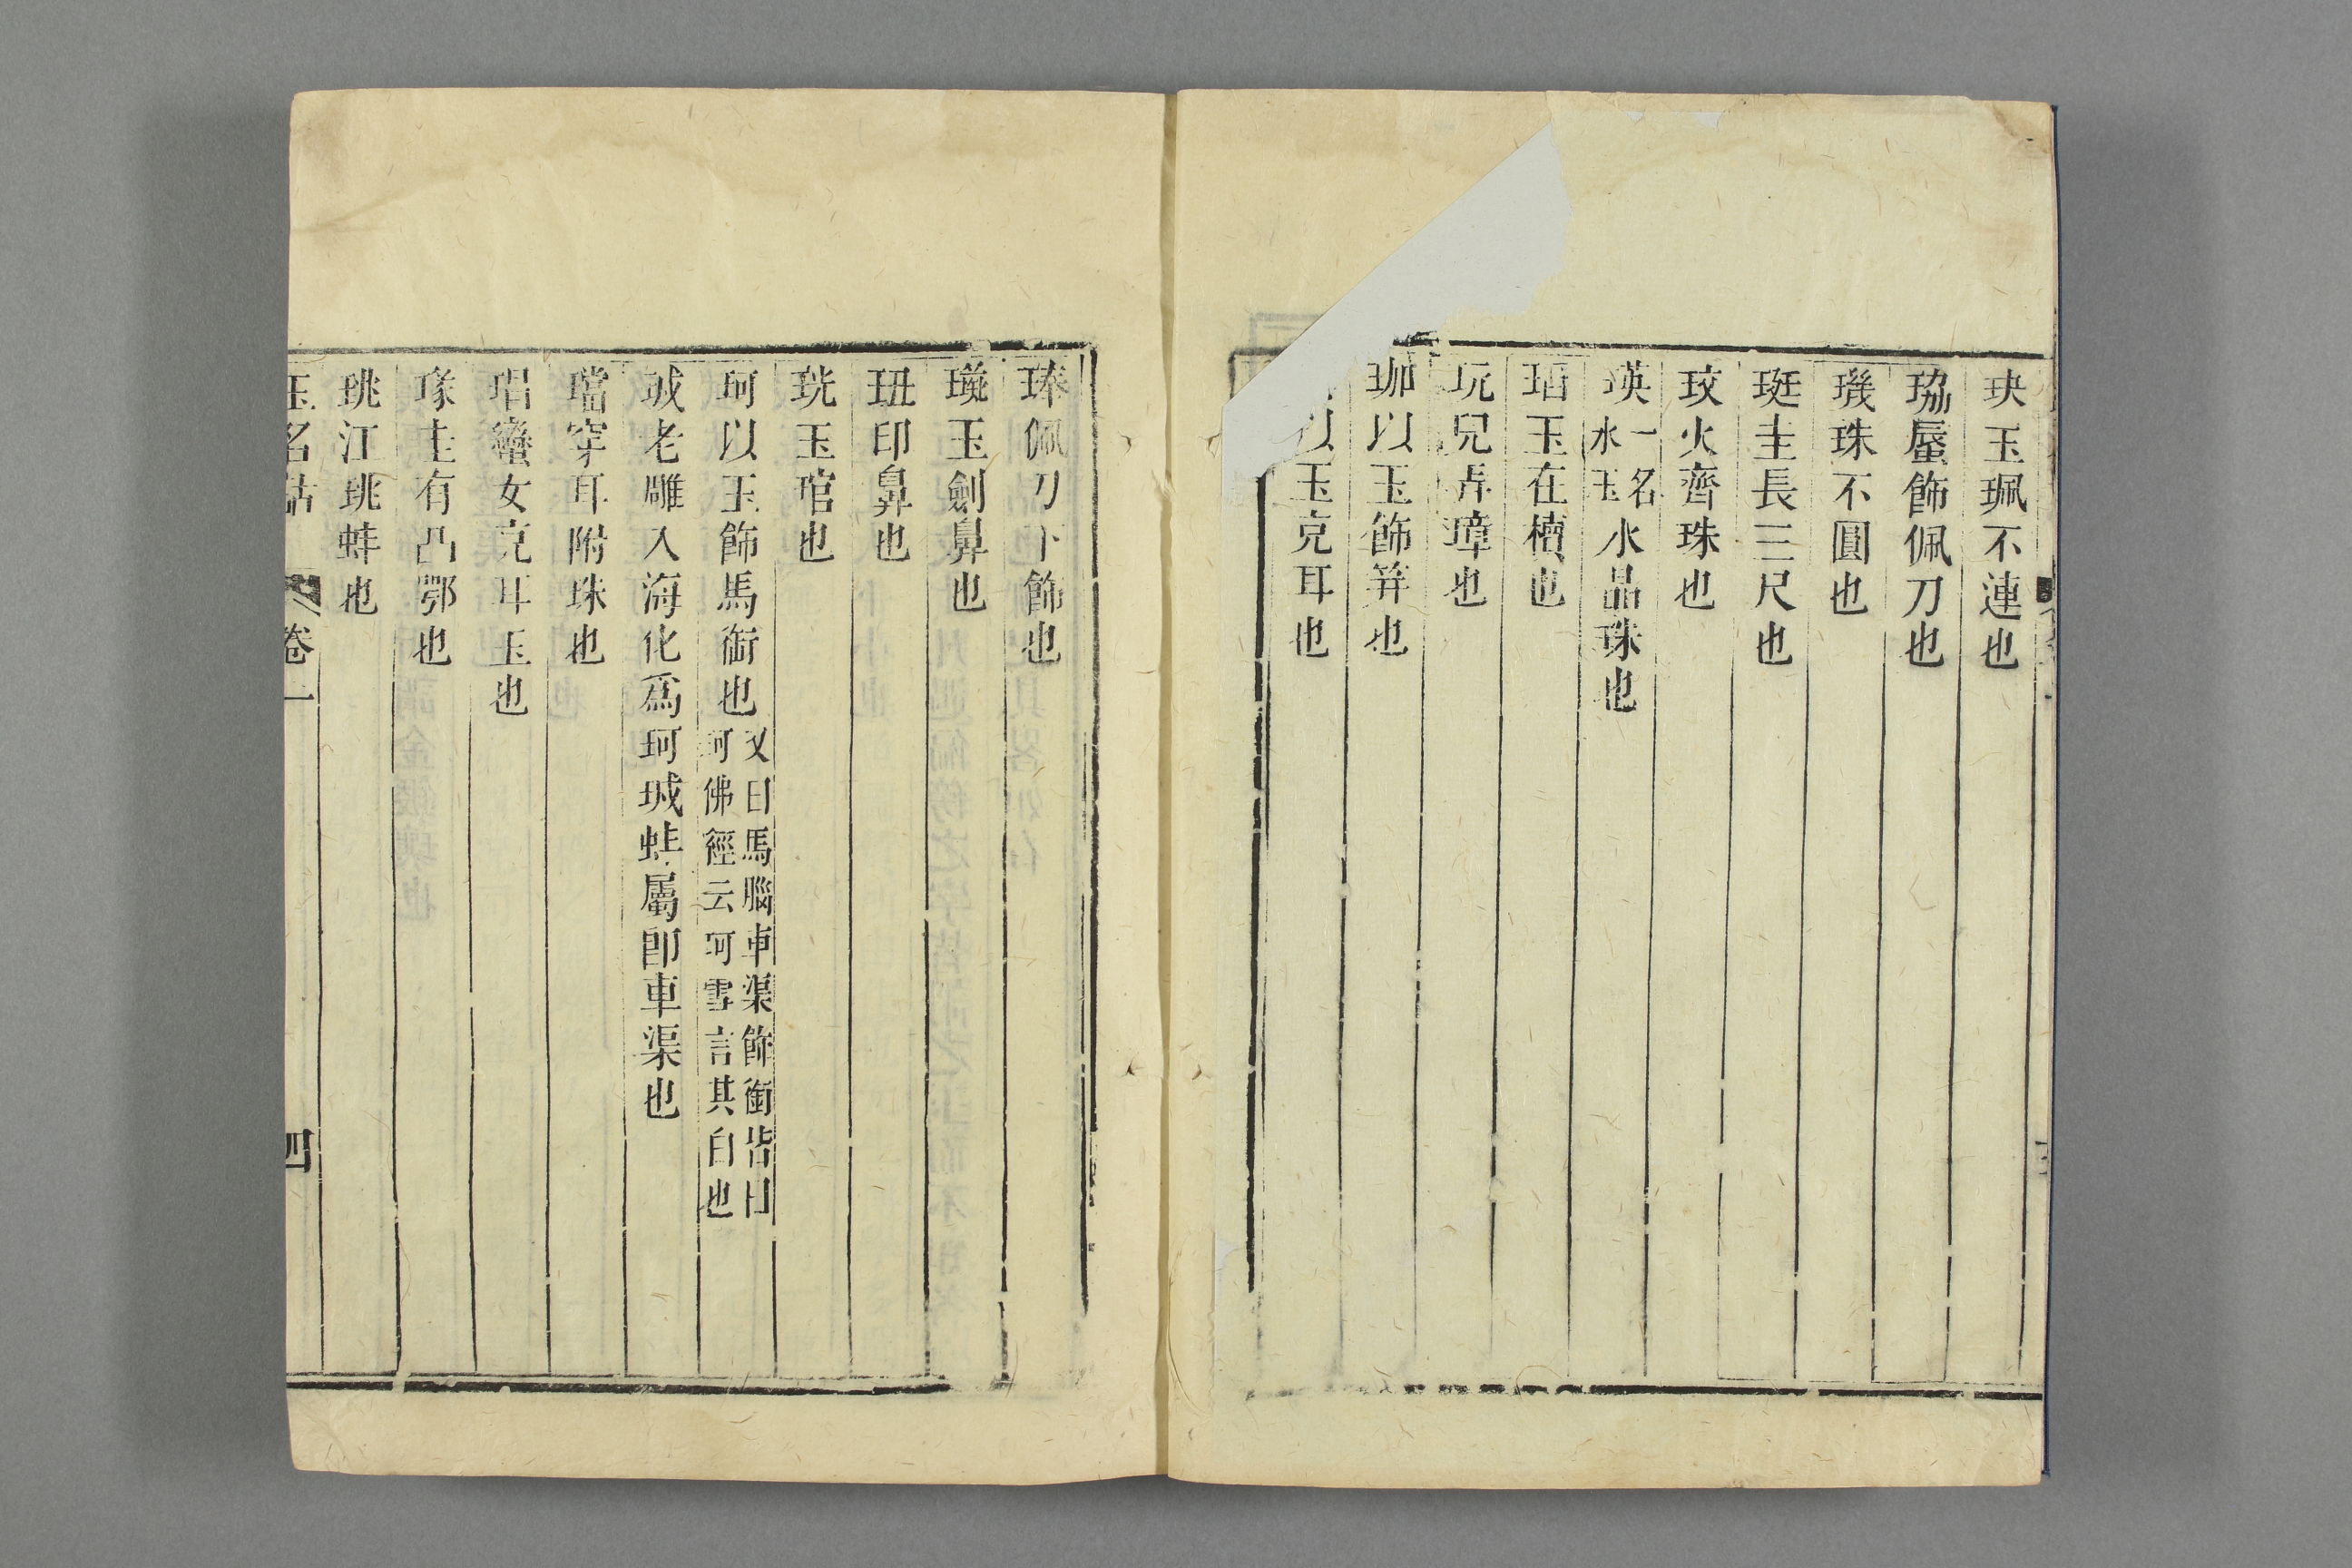 玦玉珮不連也
珕蜃飾佩刀也
璣珠不圓也
珽圭長三尺也
玟火齊珠也
瑛一名水玉水晶珠也
琩玉在櫝也
玩兒弄璋也
珈以玉飾笄也
以玉充耳也
琫佩刀下飾也
璏玉劍鼻也
玨印鼻也
珖玉琯也
珂以玉飾馬銜也又曰馬腦車渠飾銜皆曰珂佛經云珂雪言其白也
珹老雕入海化爲珂珹蚌屬卽車渠也
璫穿耳附珠也
琩蠻女充耳玉也
瑑圭有凸鄂也
珧江珧蚌也
玉名詁 卷一 四